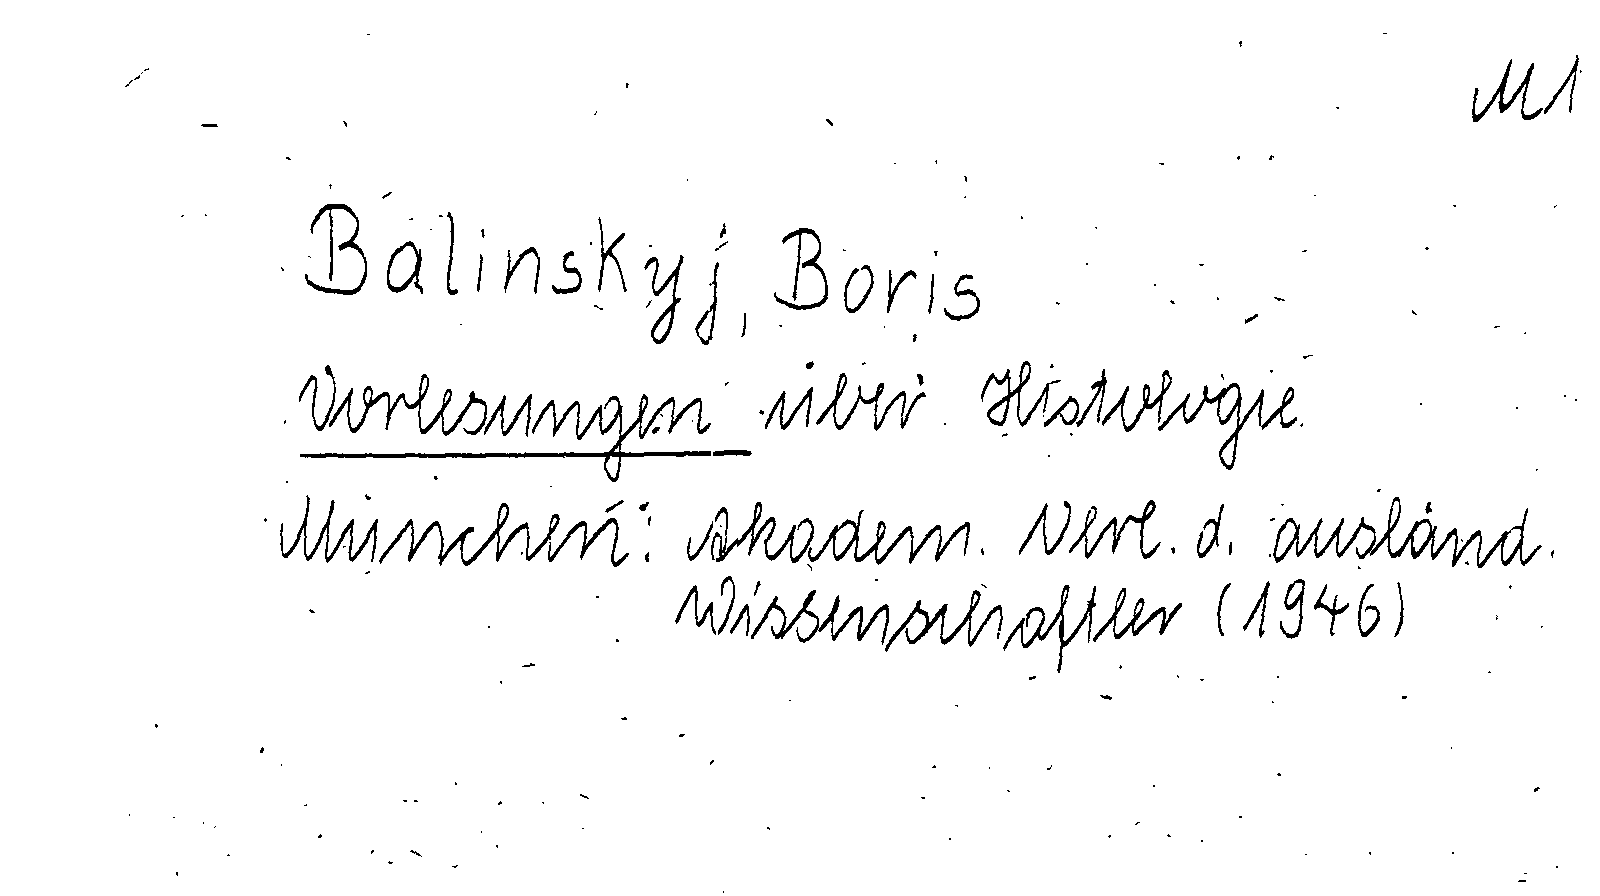 M1
Balinskyj, Boris
Vorlesungen über Histologie
München: Akadem. Verl. d. ausländ.
Wissenschaftler (1946)